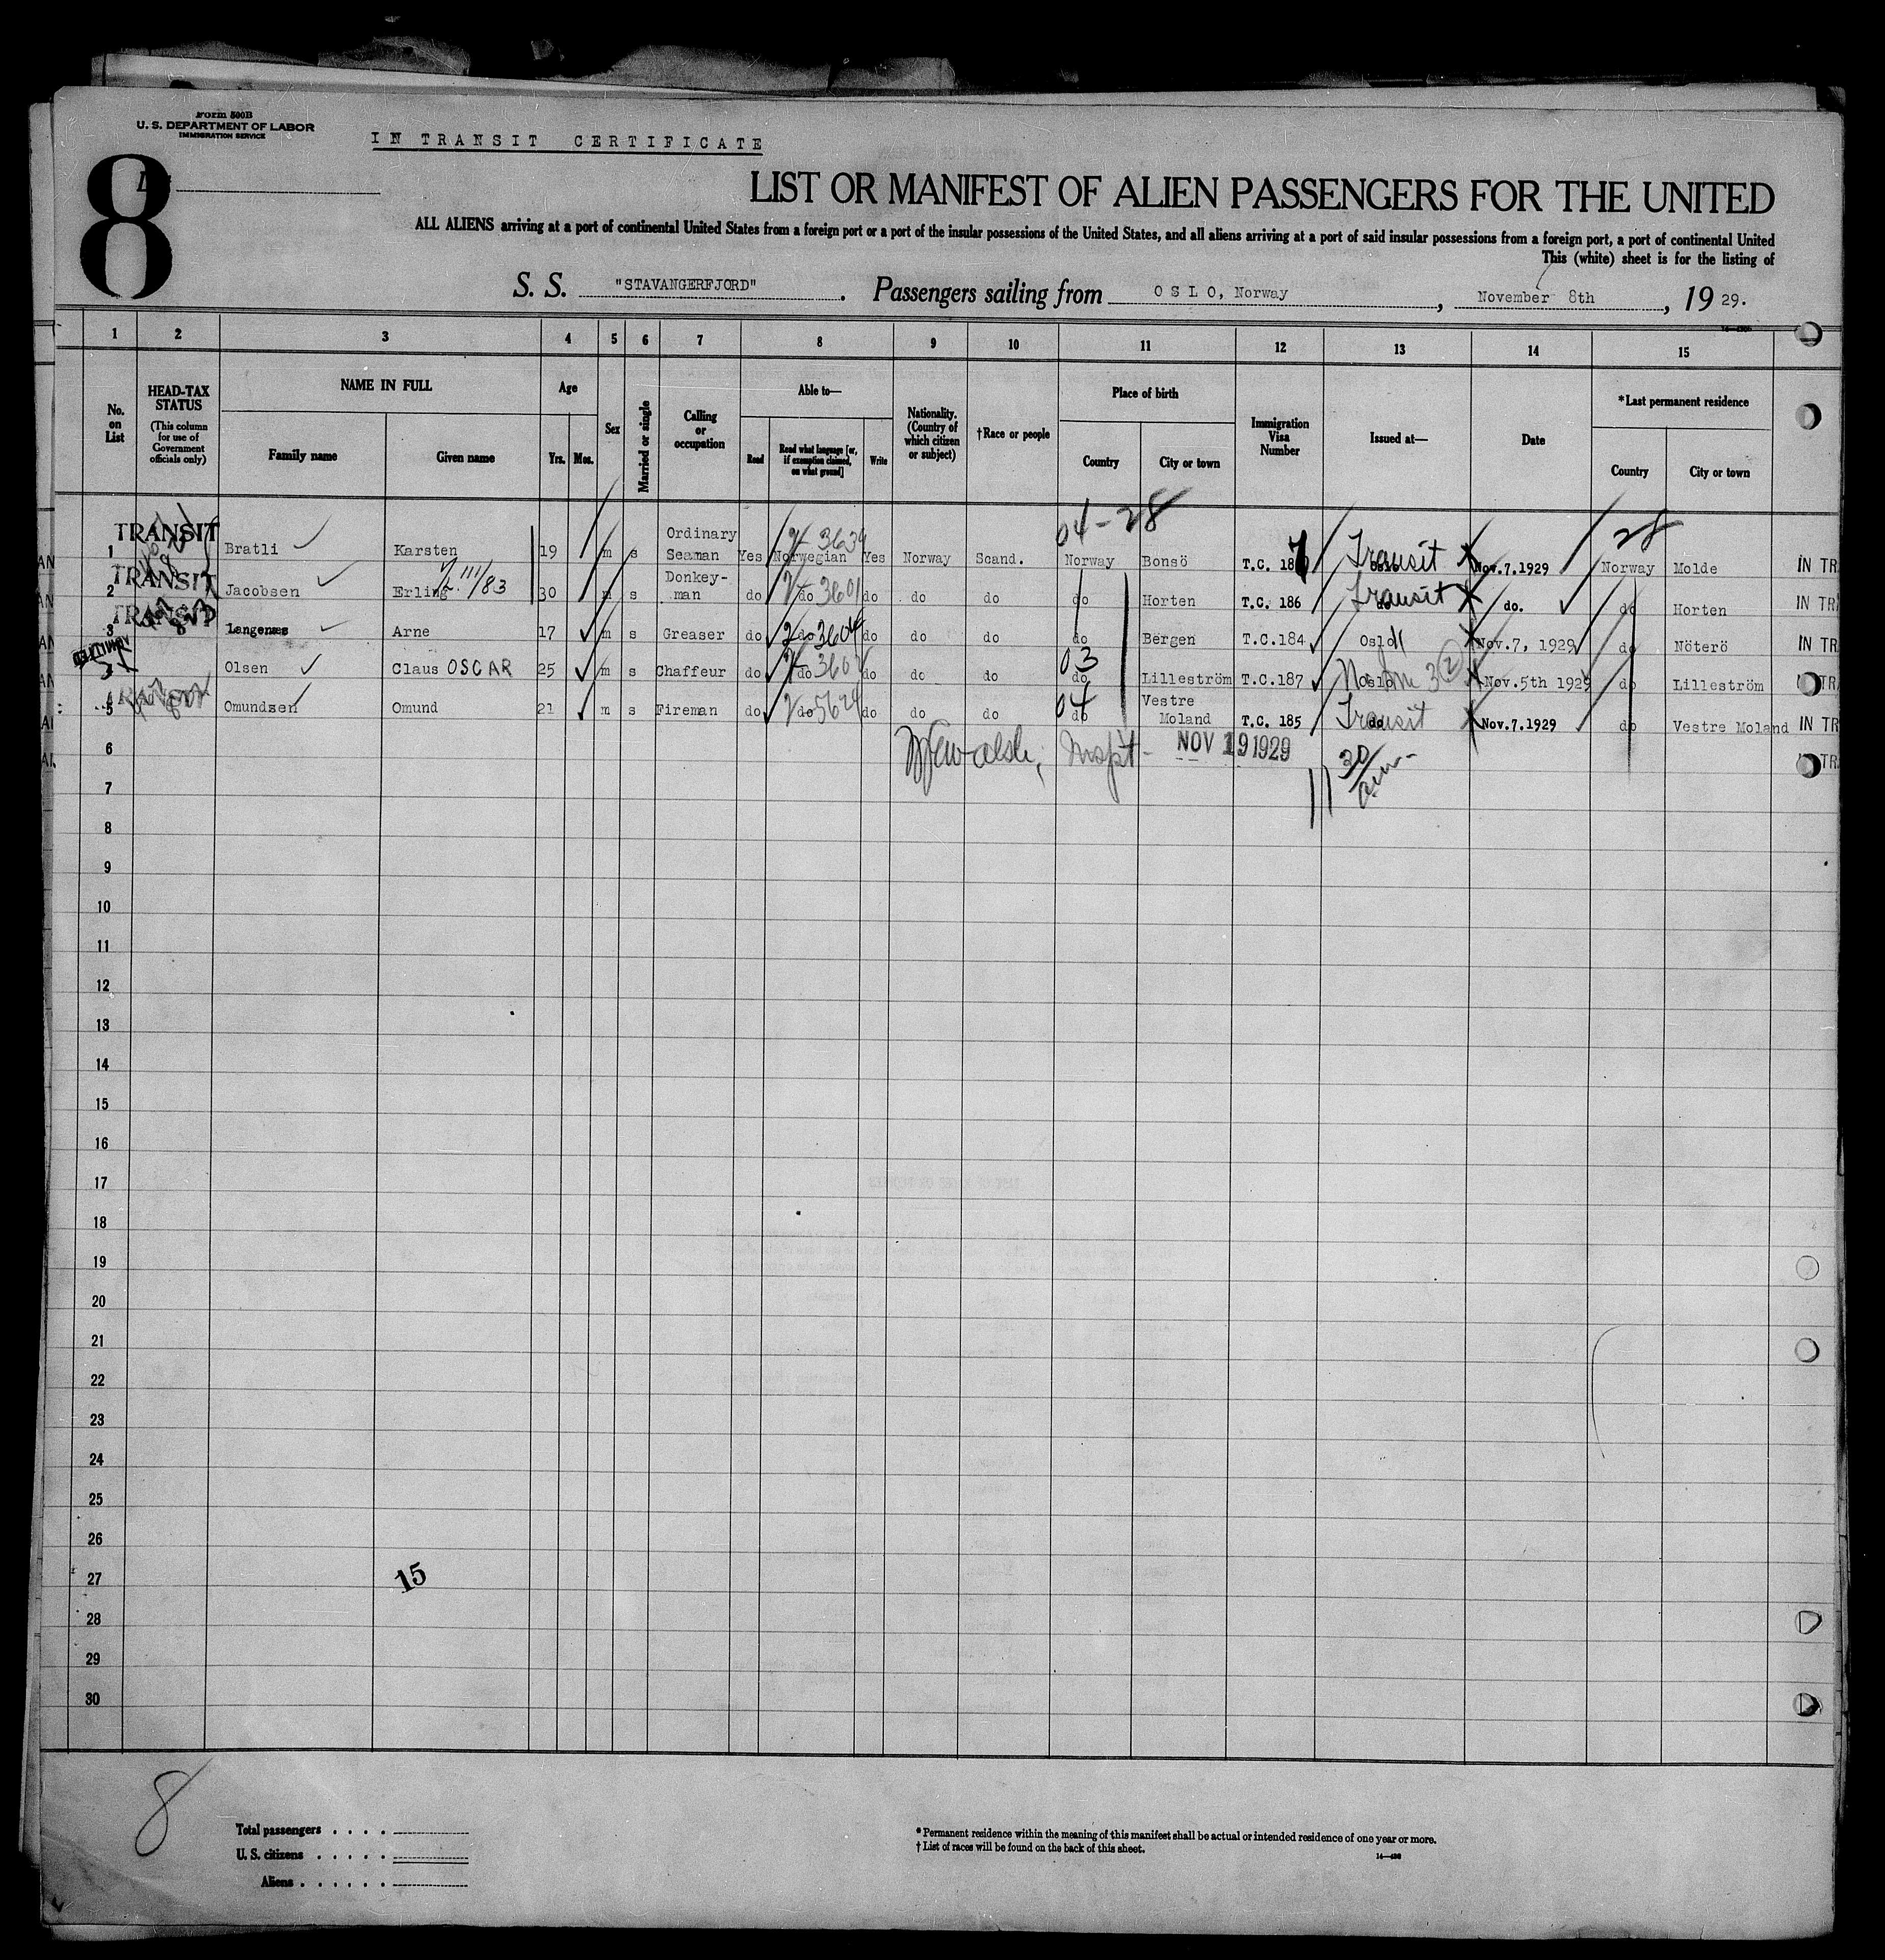 Form 500B
U. S. DEPARTMENT OF LABOR
IMMIGRATION SERVICE
IN TRANSIT CERTIFICATE
8
LIST OR MANIFEST OF ALIEN PASSENGERS FOR THE UNITED
ALL ALIENS arriving at a port of continental United States from a foreign port or a port of the insular possessions of the United States, and all aliens arriving at a port of said insular possessions from a foreign port, a port of continental United
This (white) sheet is for the listing of
S. S. "STAVANGERFJORD". Passengers sailing from OSLO, Norway, November 8th, 1929.
1 2 3 4 5 6 7 8 9 10 11 12 13 14 15
No. on List
HEAD-TAX STATUS
(This column for use of Government officials only)
NAME IN FULL
Family name Given name
Age
Yrs. Mos.
Sex
Married or single
Calling or occupation
Able to—
Read Read what language [or, if exemption claimed, on what ground] Write
Nationality. (Country of which citizen or subject)
†Race or people
Place of birth
Country City or town
Immigration Visa Number
Issued at—
Date
*Last permanent residence
Country City or town
04-28 28
TRANSIT 1 Bratli Karsten 19 m s Ordinary Seaman Yes Norwegian Yes Norway Scand. Norway Bonsö T.C. 18 Transit Nov.7.1929 Norway Molde IN TR
TRANSIT 2 Jacobsen Erling 30 m s Donkey-man do do 3601 do do do do Horten T.C. 186 do Transit do. do Horten IN TR
TRANSIT 3 Langenæs Arne 17 m s Greaser do do 3604 do do do do Bergen T.C.184 Oslo Nov.7, 1929 do Nöterö IN TR
4 Olsen Claus OSCAR 25 m s Chaffeur do do do do do 03 do Lilleström T.C.187 Oslo Nov.5th 1929 do Lilleström TR
5 Omundsen Omund 21 m s Fireman do do 5624 do do do 04 do Vestre Moland T.C. 185 do Transit Nov.7.1929 do Vestre Moland IN TR
6 Walsh, Inspt- NOV 19 1929 TR
7
8
9
10
11
12
13
14
15
16
17
18
19
20
21
22
23
24
25
26
27 15
28
29
30
8
Total passengers
U. S. citizens
Aliens
*Permanent residence within the meaning of this manifest shall be actual or intended residence of one year or more.
†List of races will be found on the back of this sheet.